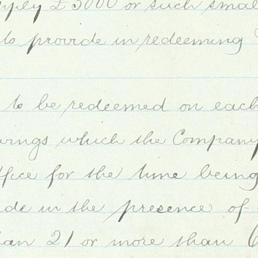 pply £5000 or such small
to provide in redeeming
to be redeemed on each
wings which the Company
ffice for the time being
de in the presence of
an 21 or more than 6